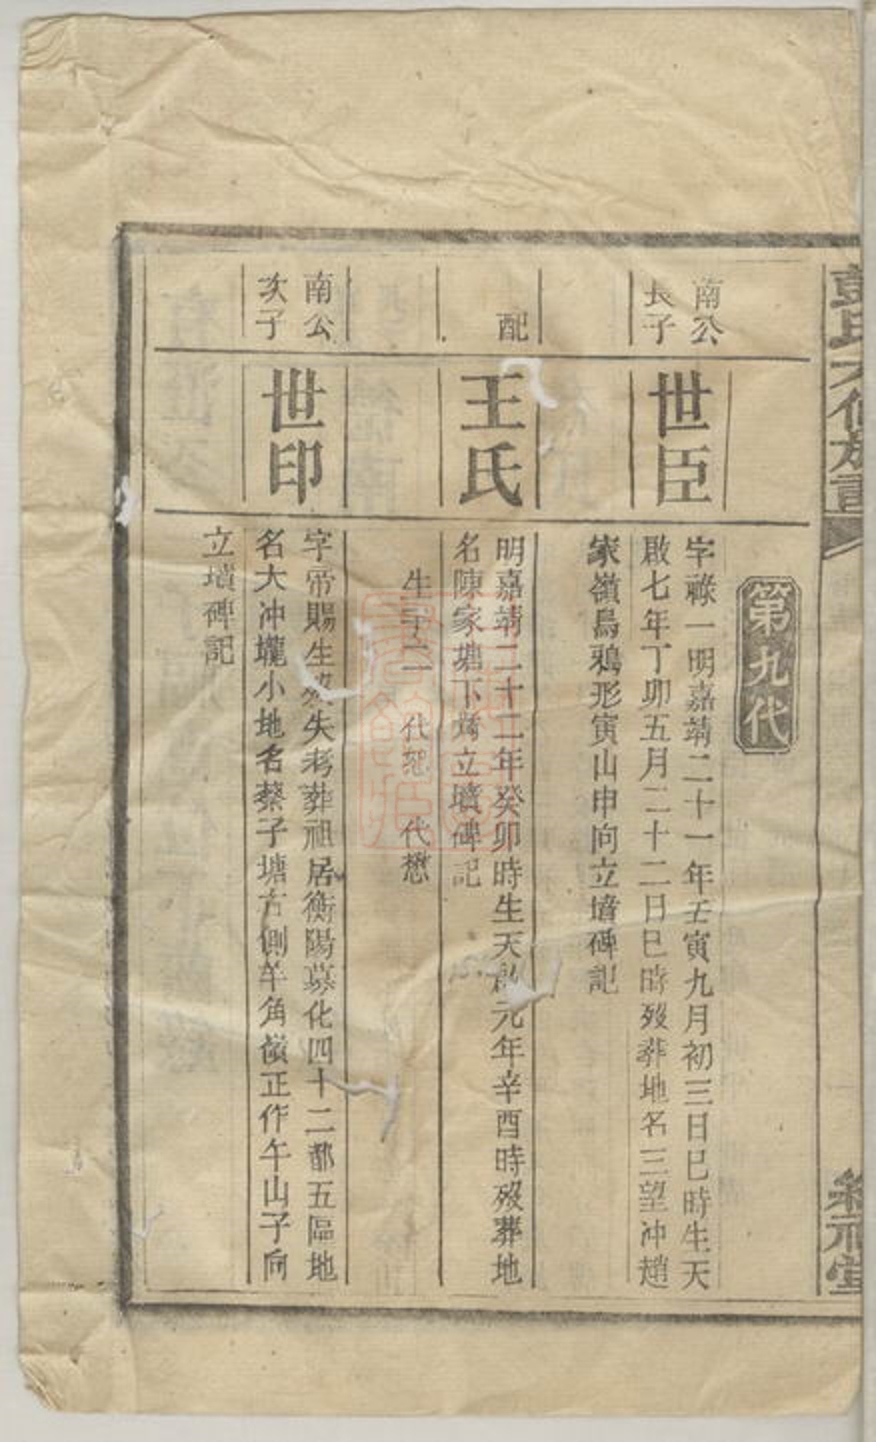 彭氏六修族譜
敘祠堂
第九代
南公
長子
世臣
字祿一明嘉靖二十一年壬寅九月初三日巳時生天
啟七年丁卯五月二十二日巳時歿葬地名三望冲趙
家嶺烏鴉形寅山申向立墳碑記
配
王氏
明嘉靖二十二年癸卯時生天啟元年辛酉時歿葬地
名陳家塘下塆立墳碑記
生子二 代恕 代懋
南公
次子
世印
字帝賜生歿失考葬祖居衡陽慕化四十二都五區地
名大冲壠小地名蔡子塘右側羊角嶺正作午山子向
立墳碑記